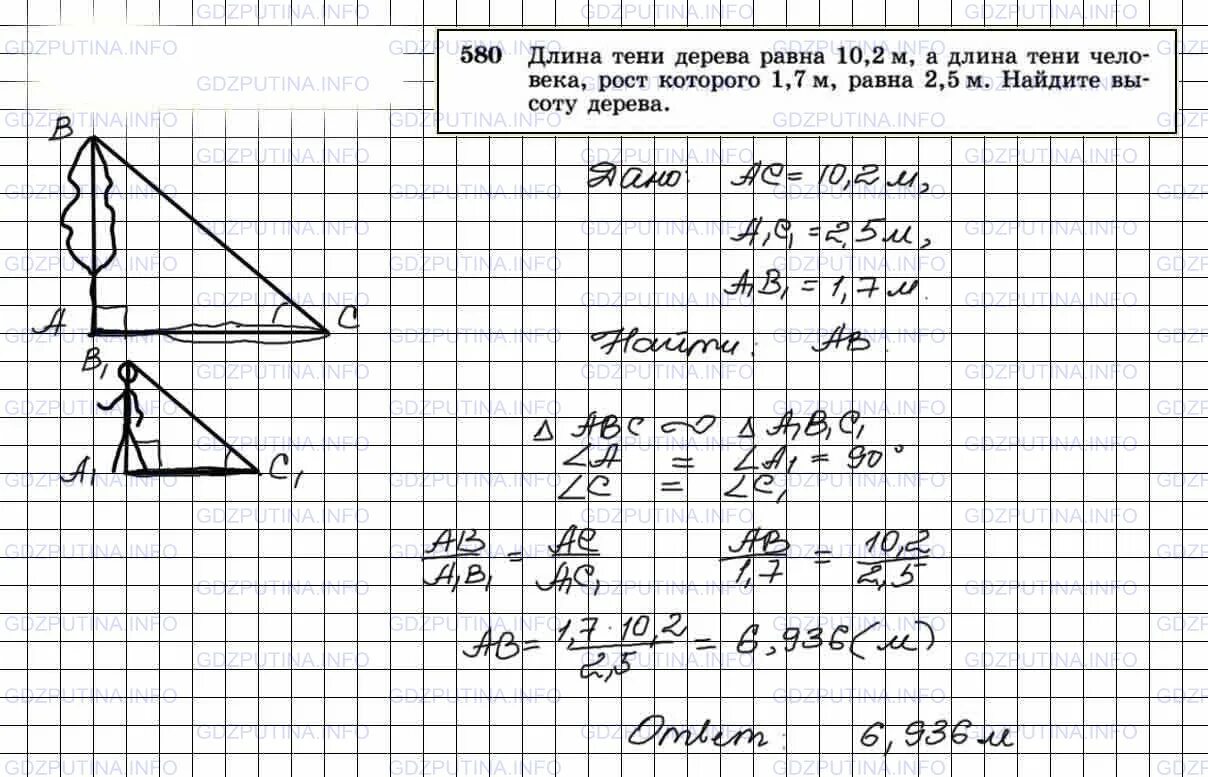 580 Длина тени дерева равна 10,2 м, а длина тени чело-
века, рост которого 1,7 м, равна 2,5 м. Найдите вы-
соту дерева.
Дано: AC = 10,2 м,
A₁C₁ = 2,5 м,
A₁B₁ = 1,7 м.
Найти: AB.
B
A
C
B₁
A₁
C₁
△ ABC ∾ △ A₁B₁C₁
∠A = ∠A₁ = 90°
∠C = ∠C₁
AB/A₁B₁ = AC/A₁C₁ AB/1,7 = 10,2/2,5
AB = 1,7 · 10,2/2,5 = 6,936 (м)
Ответ: 6,936 м
GDZPUTINA.INFO